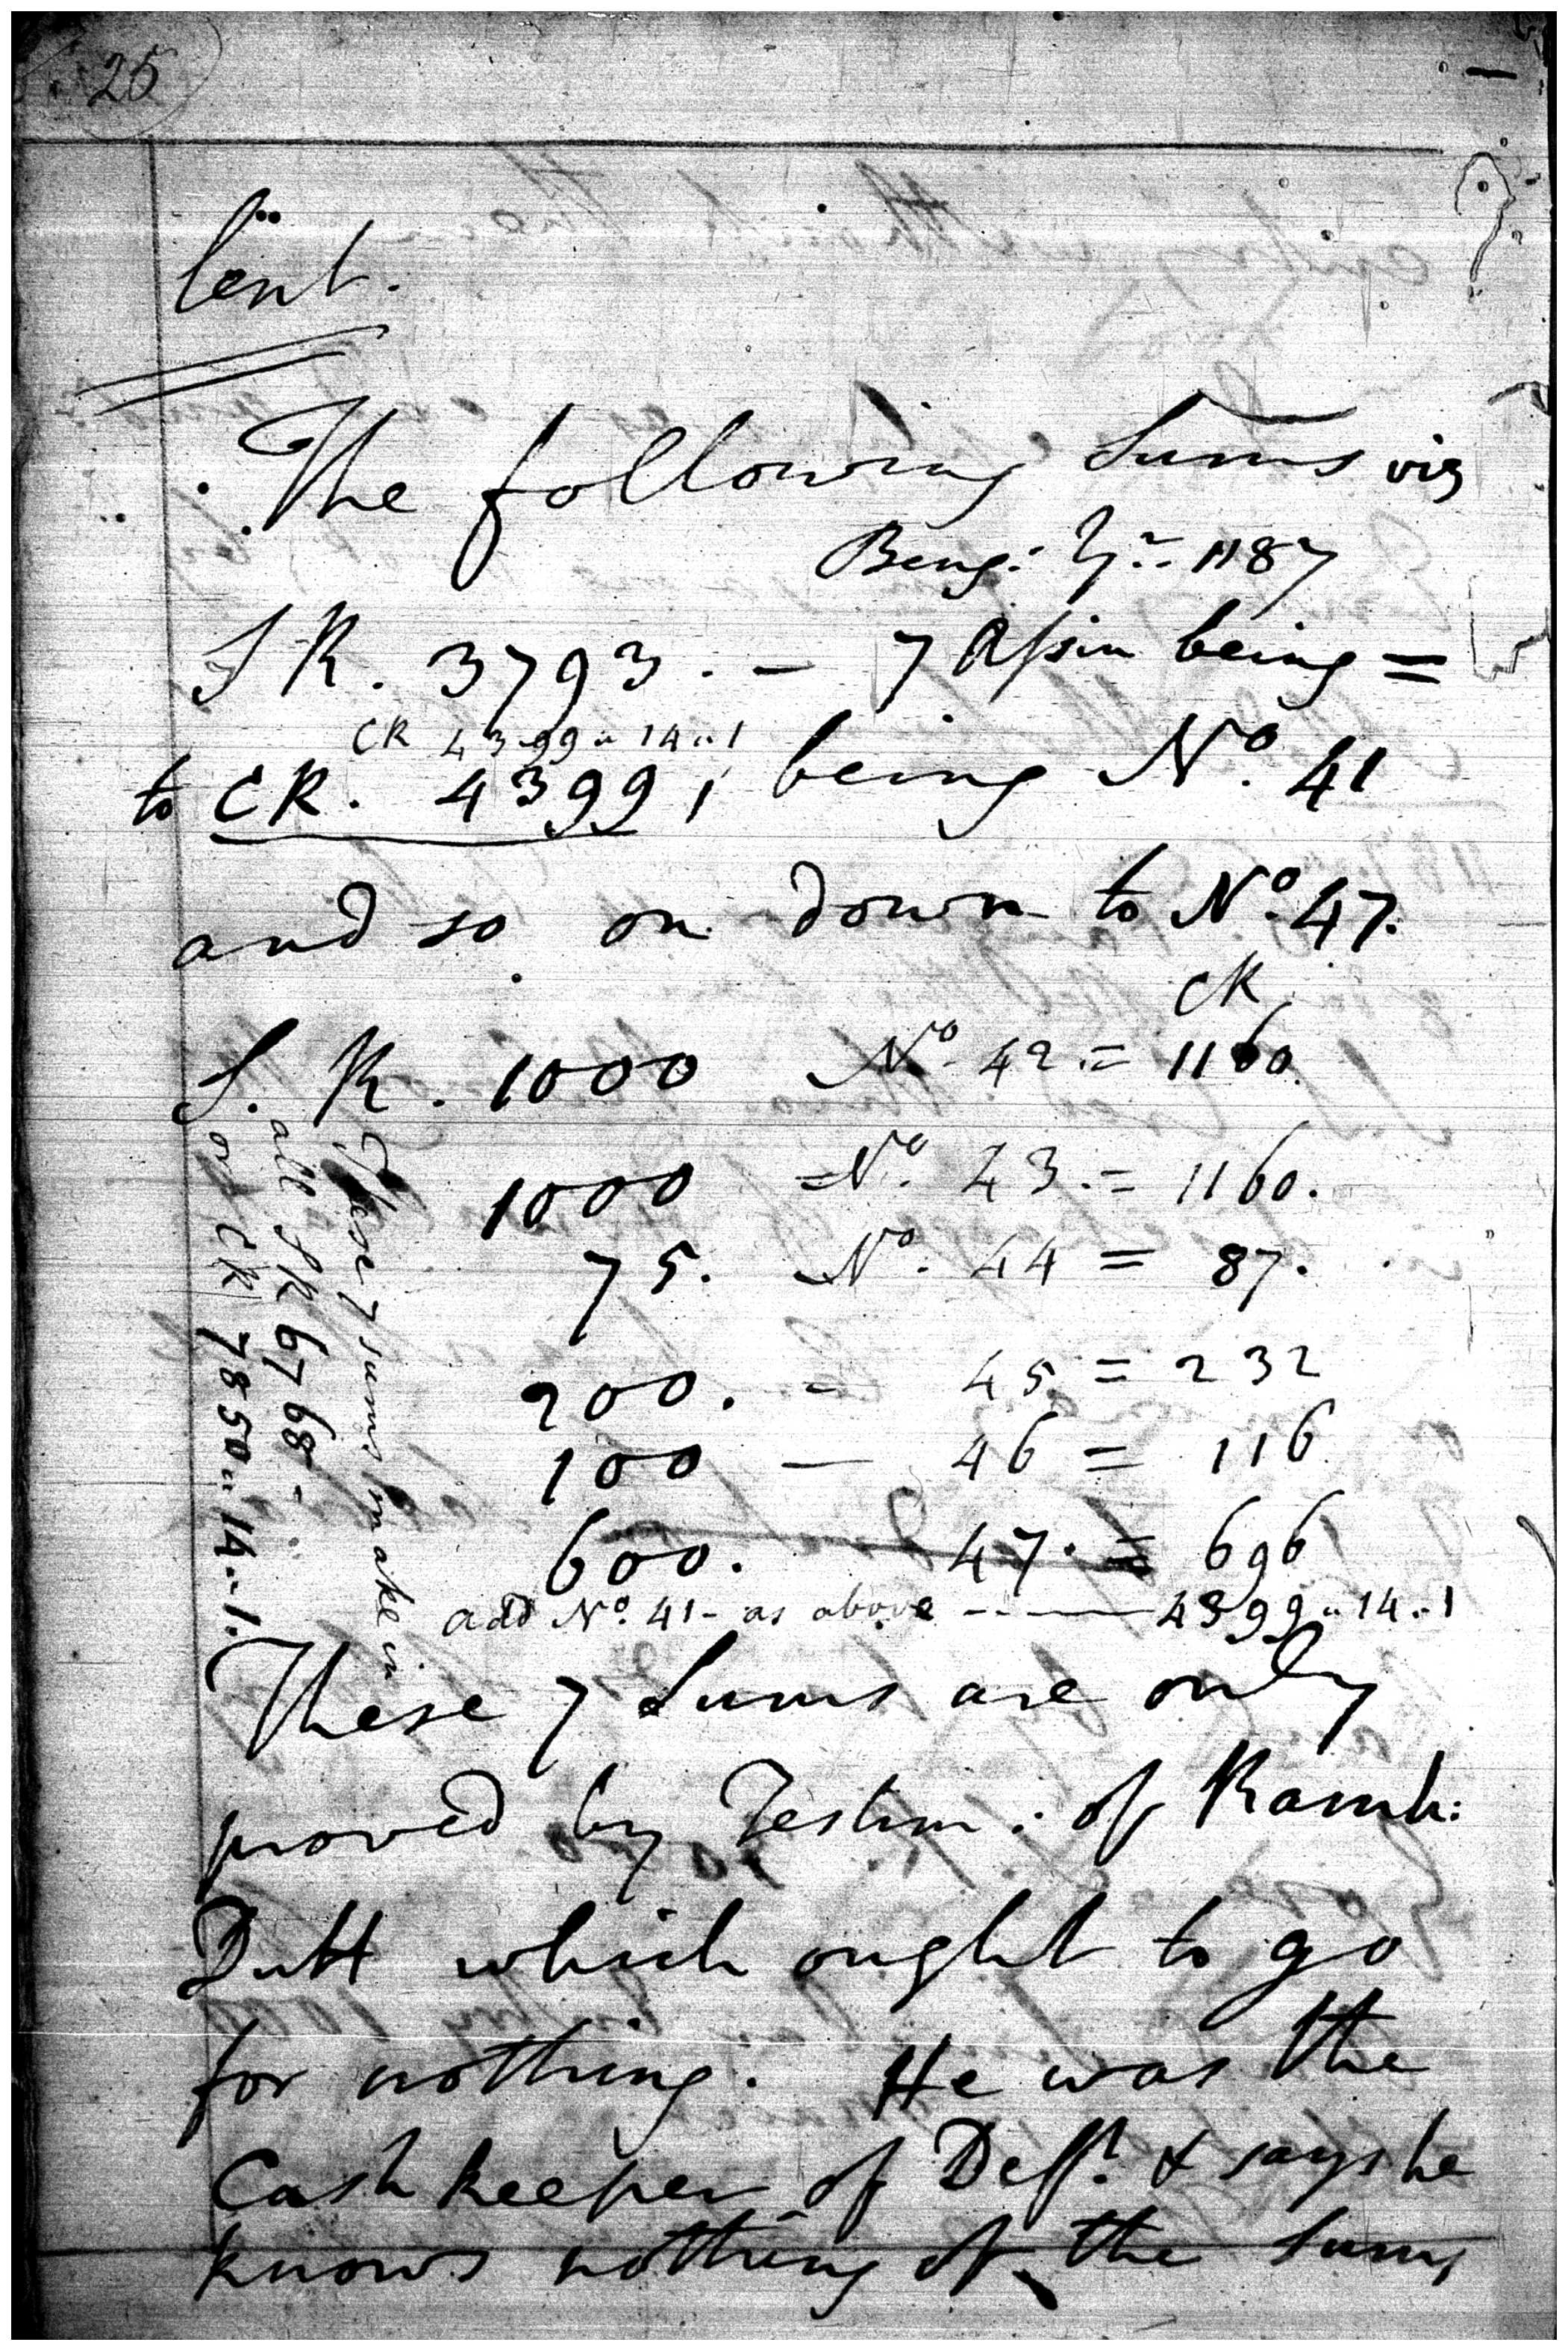 25
lent.
The following Sums viz
Beng: Yr. 1187
S R. 3793. — 7 Assin being =
CR 4399 " 14 " 1
to CR. 4399, being No. 41
and so on down to No. 47.
CR
S. R. 1000 No. 42 = 1160.
1000 No. 43. = 1160.
75. No. 44 = 87.
200. - 45 = 232
100 — 46 = 116
600. — 47. = 696
add No. 41 - as above - - — 4399 " 14 " 1
These 7 sums make in
all SR 6768 -
or CR 7850 " 14 " 1.
These 7 Sums are only
proved by Testim: of Ramh:
Dutt which ought to go
for nothing. He was the
Cash keeper of Deft. & says he
knows nothing of the Sums